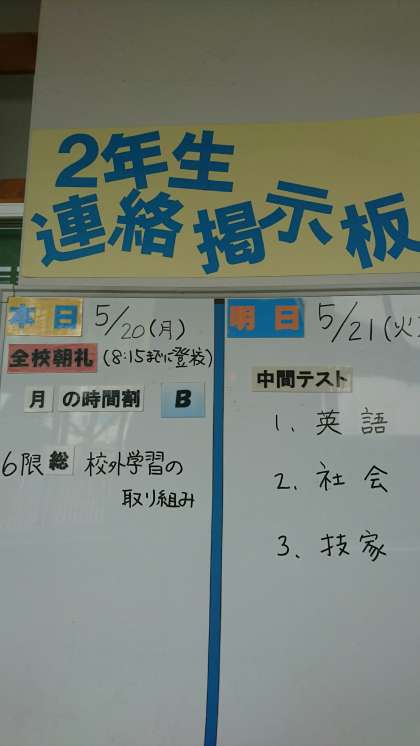 2年生
連絡掲示板
本日 5/20(月)
全校朝礼 (8:15までに登校)
月 の時間割 B
6限 総 校外学習の
取り組み
明日 5/21(火
中間テスト
1. 英語
2. 社会
3. 技家